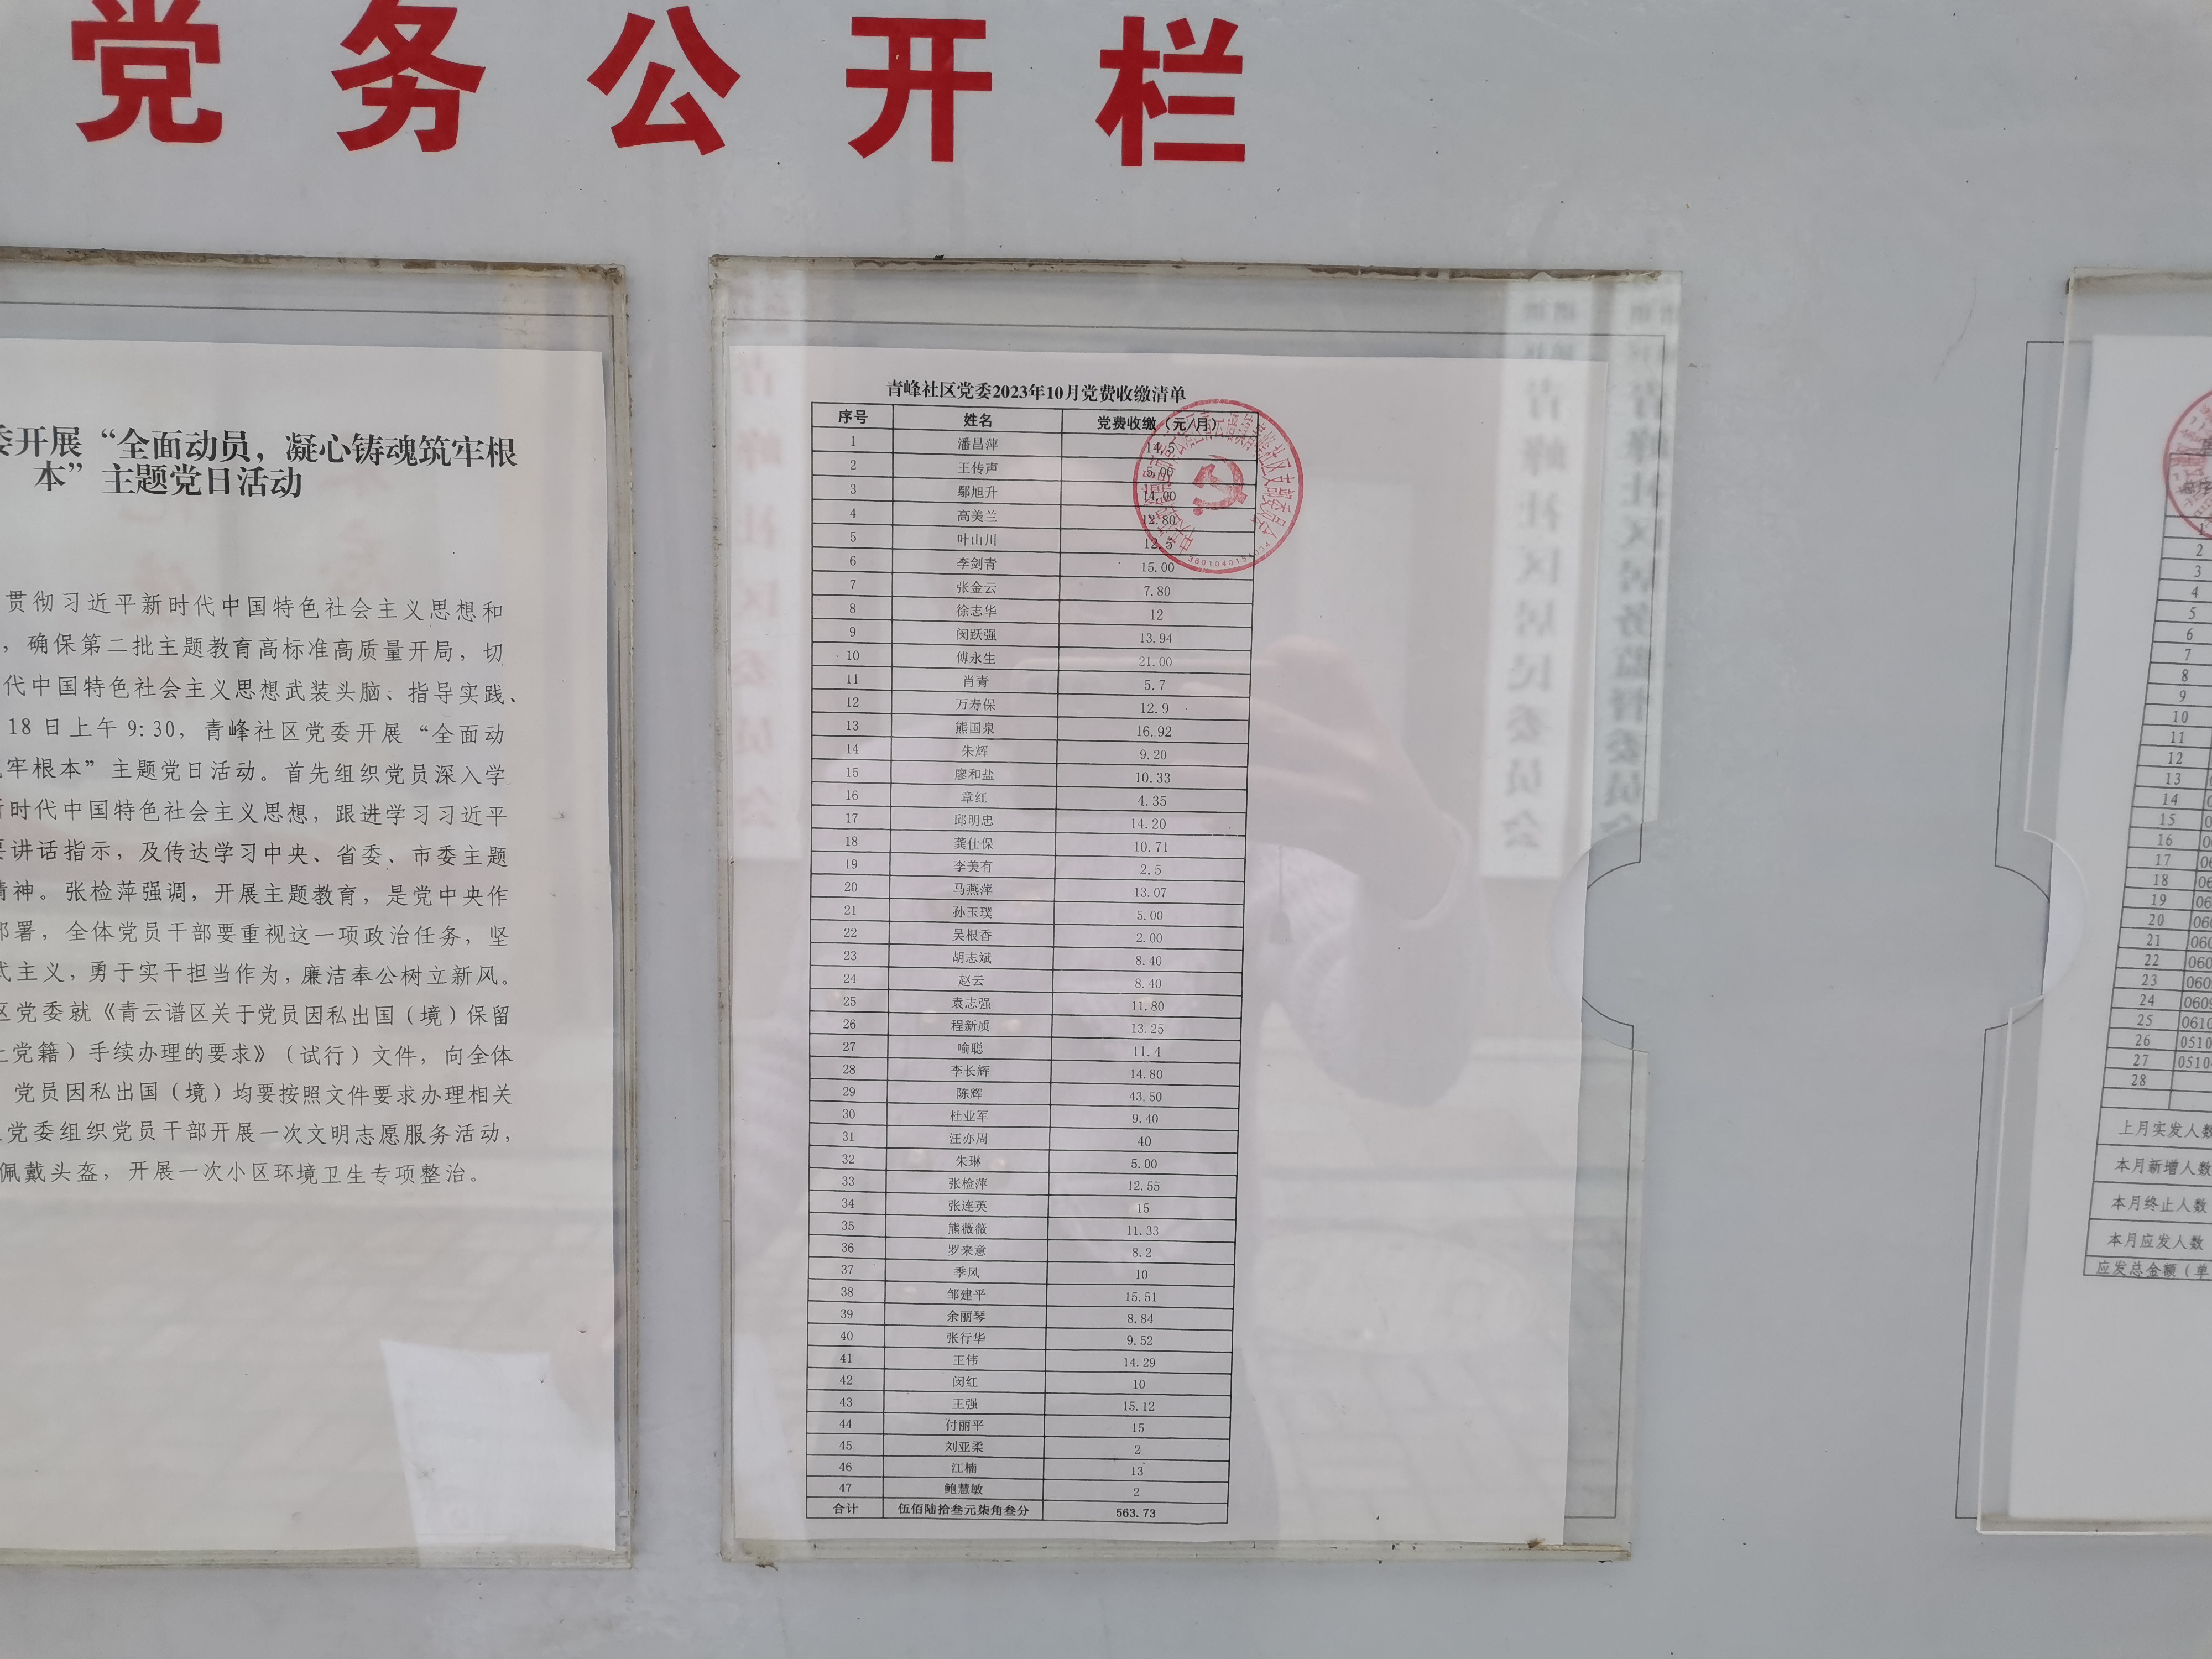 党务公开栏
委开展“全面动员，凝心铸魂筑牢根
本”主题党日活动
贯彻习近平新时代中国特色社会主义思想和
，确保第二批主题教育高标准高质量开局，切
代中国特色社会主义思想武装头脑、指导实践、
18日上午9:30，青峰社区党委开展“全面动
牢根本”主题党日活动。首先组织党员深入学
新时代中国特色社会主义思想，跟进学习习近平
要讲话指示，及传达学习中央、省委、市委主题
精神。张检萍强调，开展主题教育，是党中央作
部署，全体党员干部要重视这一项政治任务，坚
式主义，勇于实干担当作为，廉洁奉公树立新风。
区党委就《青云谱区关于党员因私出国（境）保留
止党籍）手续办理的要求》（试行）文件，向全体
党员因私出国（境）均要按照文件要求办理相关
党委组织党员干部开展一次文明志愿服务活动，
佩戴头盔，开展一次小区环境卫生专项整治。
青峰社区党委2023年10月党费收缴清单
序号 姓名 党费收缴（元/月）
1 潘昌萍 14.5
2 王传声 5.00
3 鄢旭升 11.00
4 高美兰 12.80
5 叶山川 12.5
6 李剑青 15.00
7 张金云 7.80
8 徐志华 12
9 闵跃强 13.94
10 傅永生 21.00
11 肖青 5.7
12 万寿保 12.9
13 熊国泉 16.92
14 朱辉 9.20
15 廖和盐 10.33
16 章红 4.35
17 邱明忠 14.20
18 龚仕保 10.71
19 李美有 2.5
20 马燕萍 13.07
21 孙玉璞 5.00
22 吴根香 2.00
23 胡志斌 8.40
24 赵云 8.40
25 袁志强 11.80
26 程新质 13.25
27 喻聪 11.4
28 李长辉 14.80
29 陈辉 43.50
30 杜业军 9.40
31 汪亦周 40
32 朱琳 5.00
33 张检萍 12.55
34 张连英 15
35 熊薇薇 11.33
36 罗来意 8.2
37 季风 10
38 邹建平 15.51
39 余丽琴 8.84
40 张行华 9.52
41 王伟 14.29
42 闵红 10
43 王强 15.12
44 付丽平 15
45 刘亚柔 2
46 江楠 13
47 鲍慧敏 2
合计 伍佰陆拾叁元柒角叁分 563.73
1
2
3
4
5
6
7
8
9
10
11
12
13 0
14 0
15 0
16 0
17 06
18 06
19 06
20 06
21 060
22 060
23 060
24 0609
25 0610
26 0510
27 0510
28
上月实发人数
本月新增人数
本月终止人数
本月应发人数
应发总金额（单